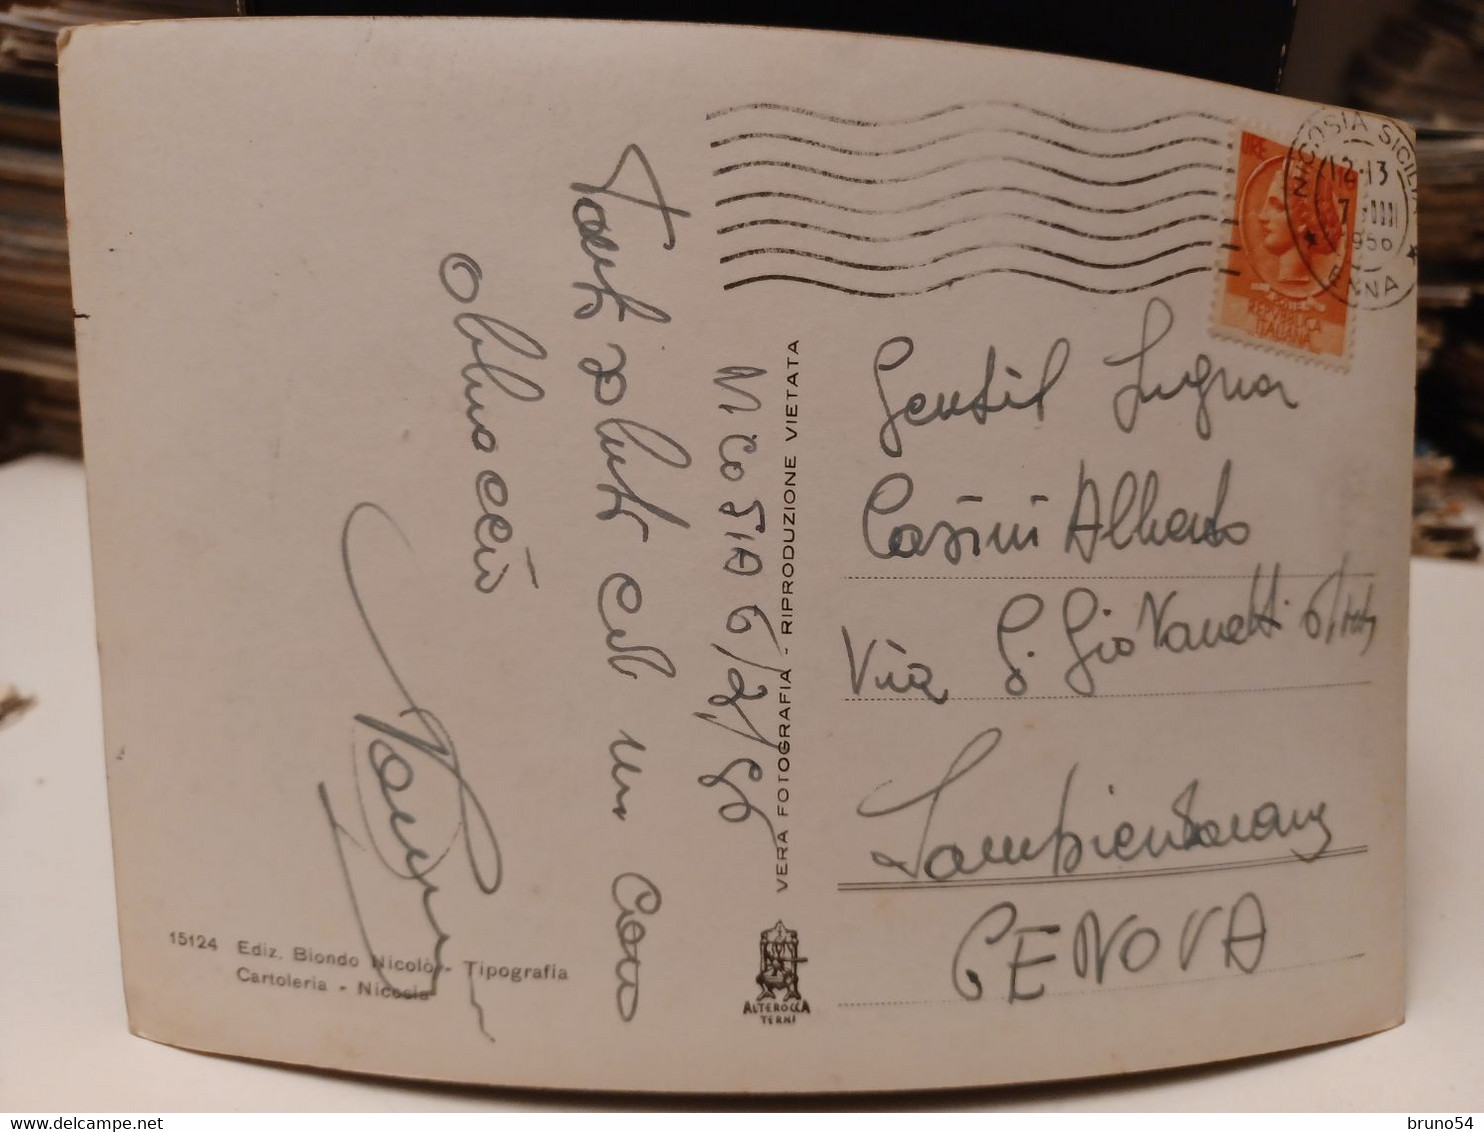 NICOSIA SICILIA
12-13
1956
ENNA
LIRE
REPVBBLICA
ITALIANA
NICOSIA 6/2/56
Tanti saluti ed un caro
abbraccio
Gentil Signor
Casini Alberto
Via G. Giovanetti 6/
Sampierdarena
GENOVA
VERA FOTOGRAFIA - RIPRODUZIONE VIETATA
15124 Ediz. Biondo Nicolò - Tipografia
Cartoleria - Nicosia
ALTEROCCA
TERNI
delcampe.net
bruno54